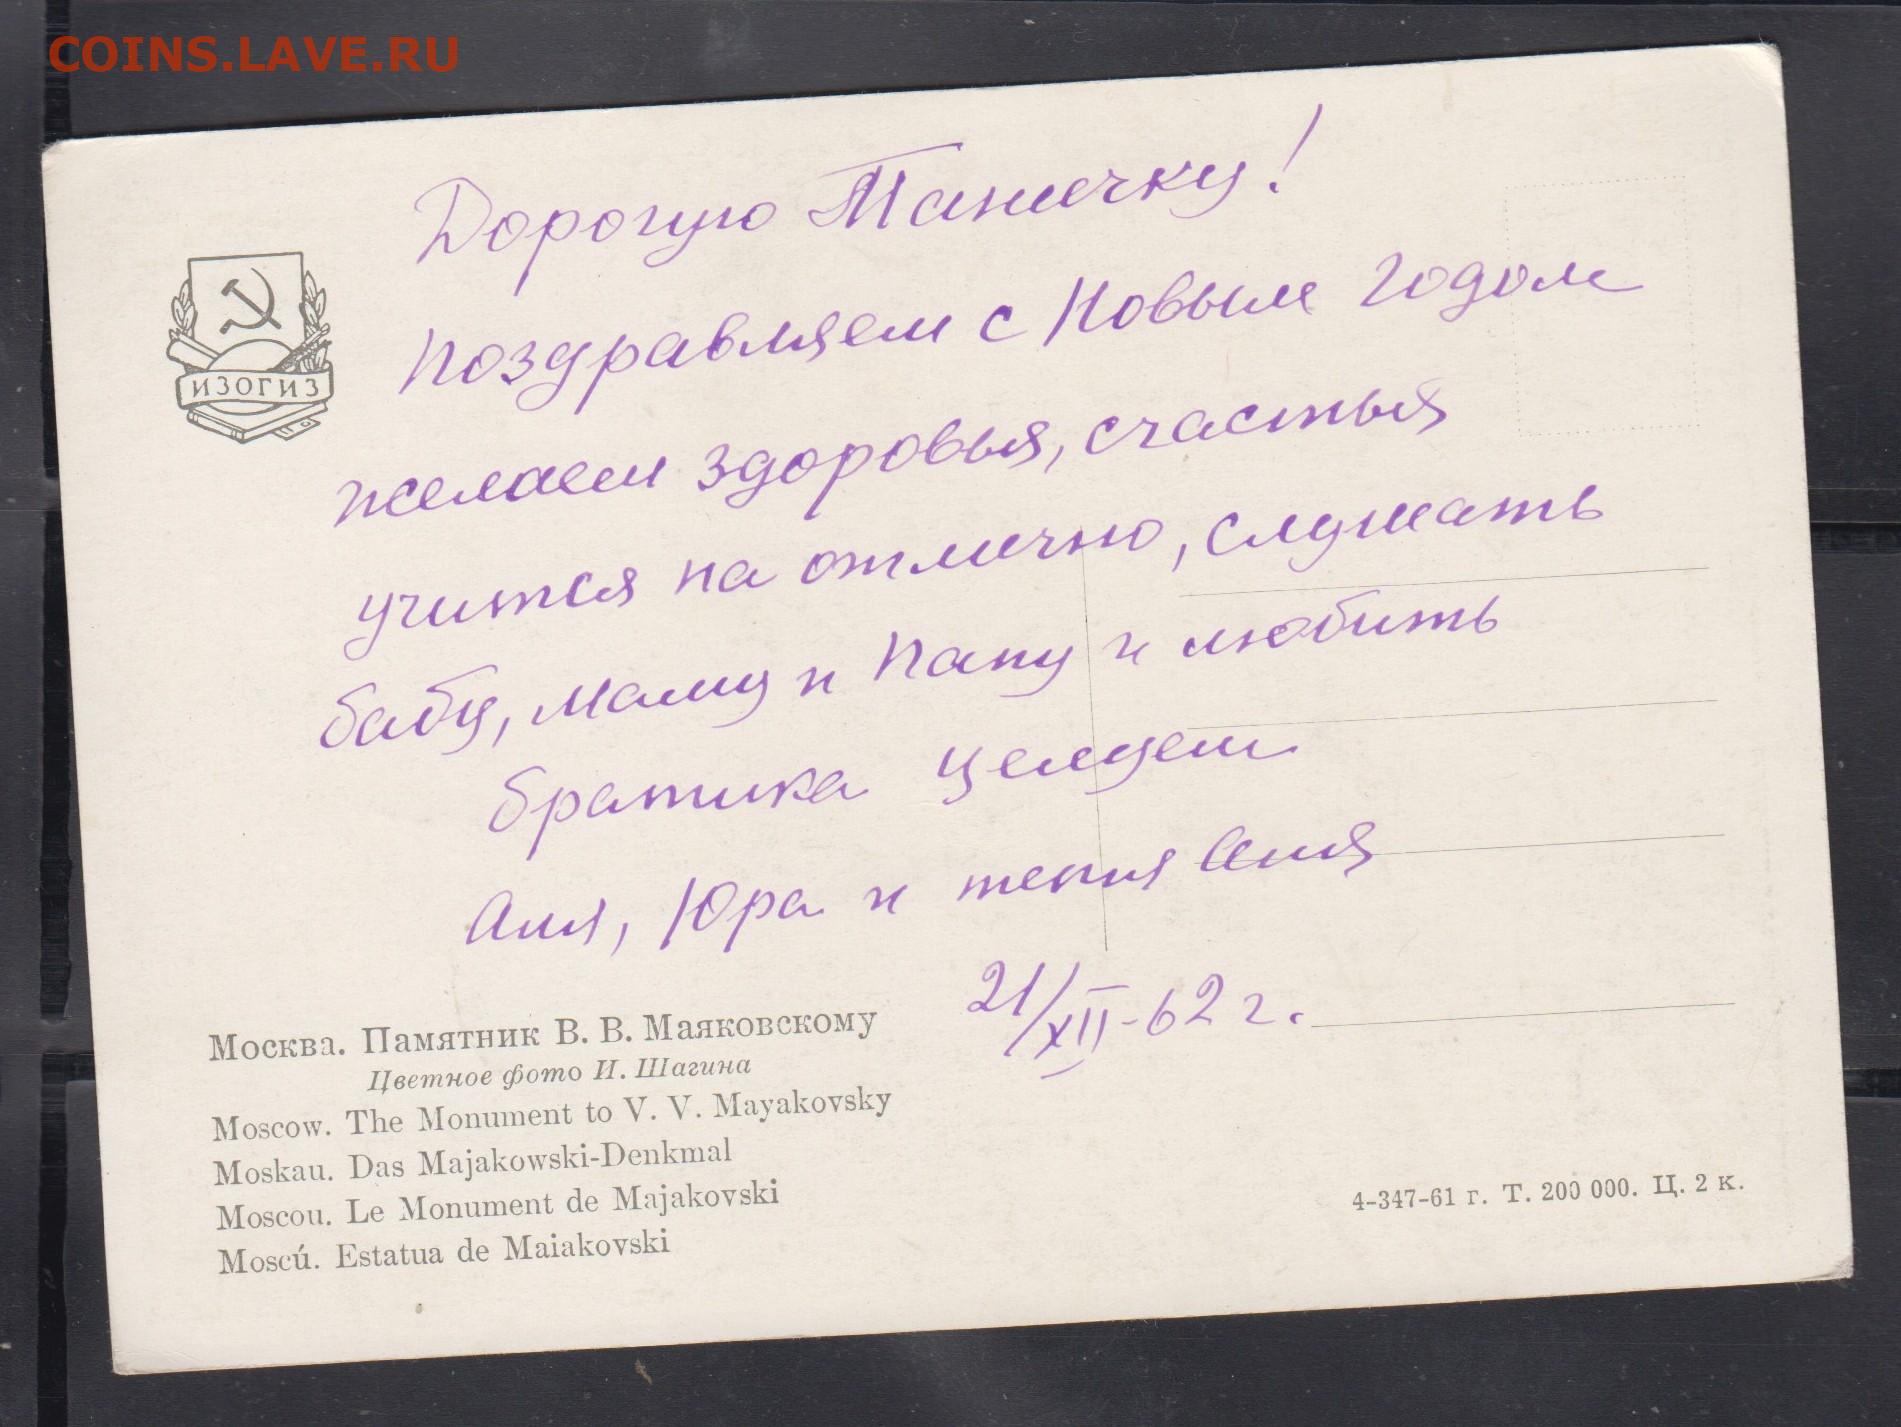 COINS.LAVE.RU
Дорогую Танечку!
Поздравляем с Новым годом
желаем здоровья, счастья
учится на отлично, слушать
бабу, маму и папу и любить
братика целуем
Аля, Юра и тетя Аня
21/XII-62 г.
ИЗОГИЗ
Москва. Памятник В. В. Маяковскому
Цветное фото И. Шагина
Moscow. The Monument to V. V. Mayakovsky
Moskau. Das Majakowski-Denkmal
Moscou. Le Monument de Majakovski
Moscú. Estatua de Maiakovski
4-347-61 г. Т. 200 000. Ц. 2 к.